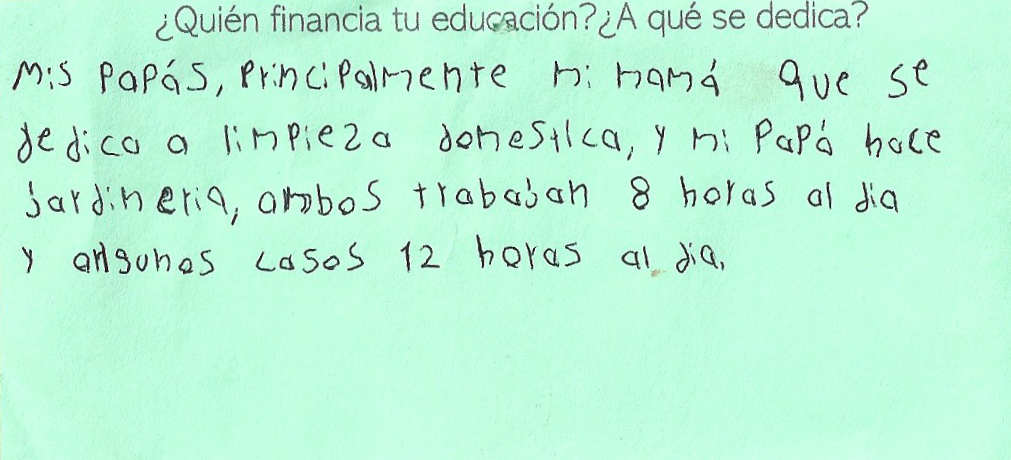 ¿Quién financia tu educación?¿A qué se dedica?
Mis papás, principalmente mi mamá que se
dedica a limpieza domestica, y mi papá hace
jardineria, ambos trabajan 8 horas al dia
y algunos casos 12 horas al dia.